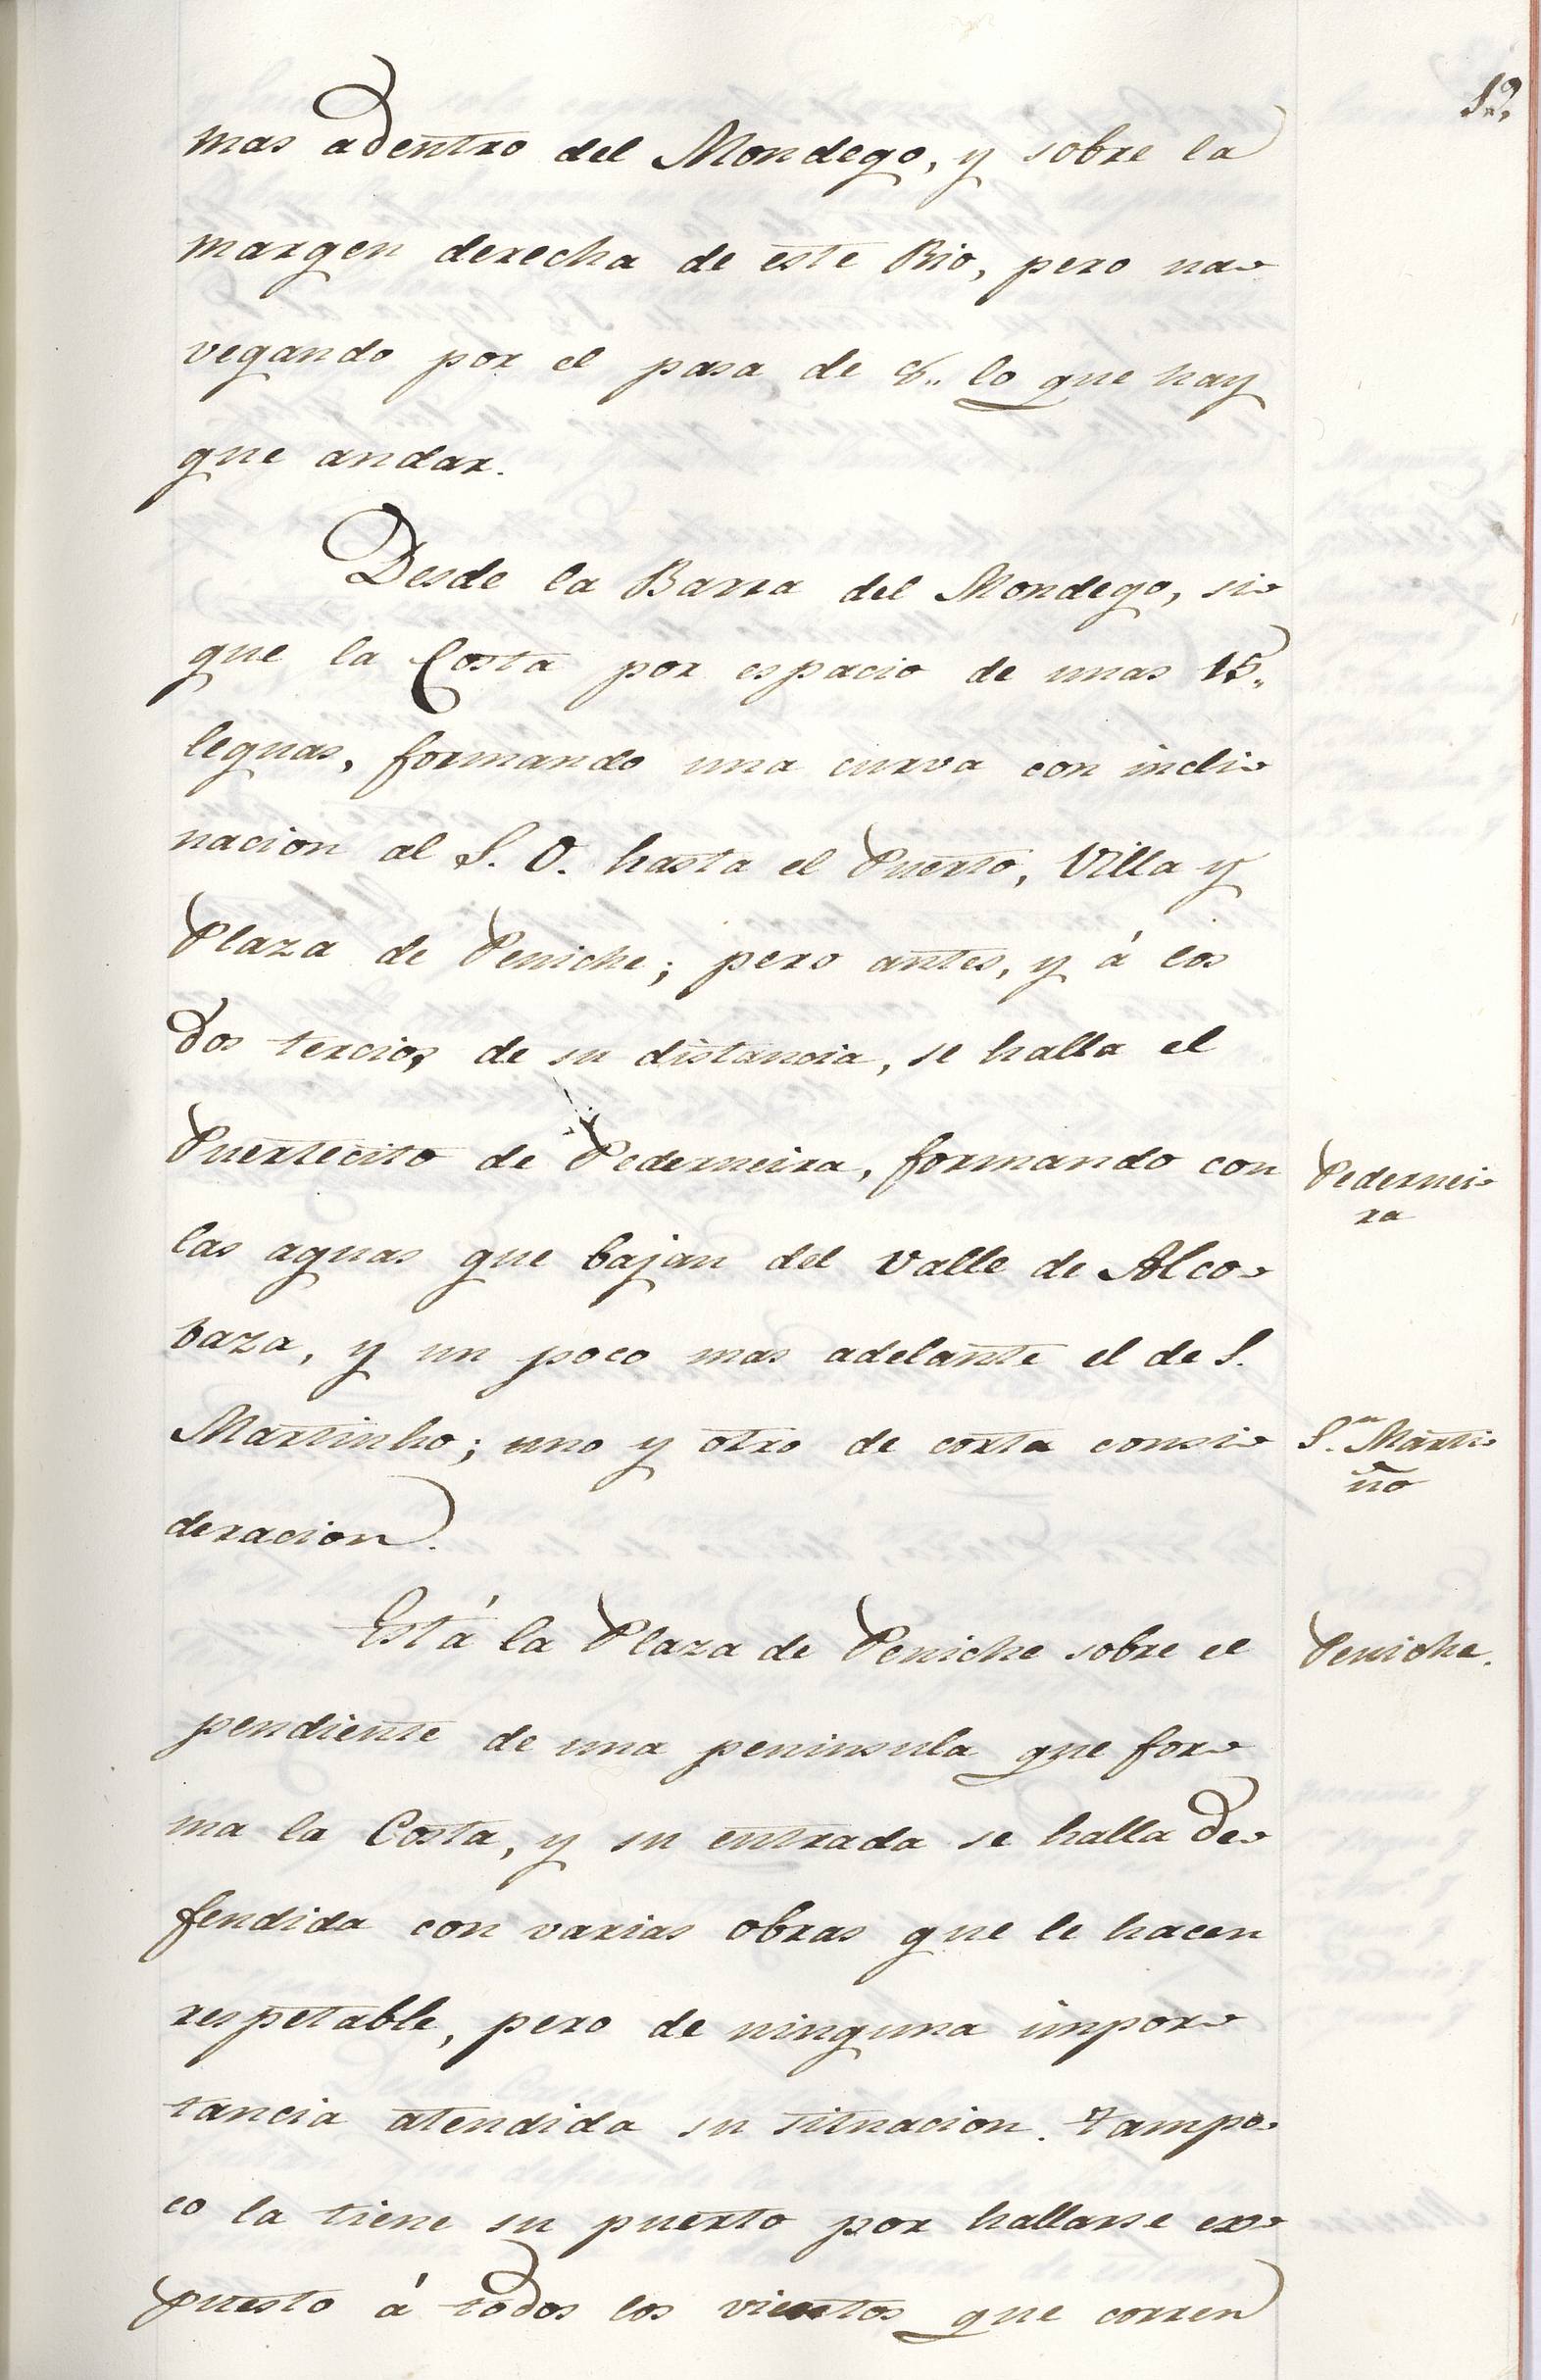 12,
mas adentro del Mondego, y sobre la
margen derecha de este Rio, pero na-
vegando por el pasa de 8,, lo que hay
que andar.
Desde la Barra del Mondego, si-
gue la Costa por espacio de unas 15,,
leguas, formando una curva con incli-
nacion al S. O. hasta el Puerto, Villa y
Plaza de Peniche; pero antes, y á los
dos tercios, de su distancia, se halla el
Puertecito de Pederneira, formando con
Pedernei-
ra
las aguas que bajan del Valle de Alco-
baza, y un poco mas adelante el de S.
Martinho; uno y otro de corta consi-
S.n Marti-
ño
deracion.
Está la Plaza de Peniche sobre el
Peniche.
pendiente de una peninsula que for-
ma la Costa, y su entrada se halla de-
fendida con varias obras que le hacen
respetable, pero de ninguna impor-
tancia atendida su situacion. tampo-
co la tiene su puerto por hallarse ex-
puesto á todos los vientos que corren